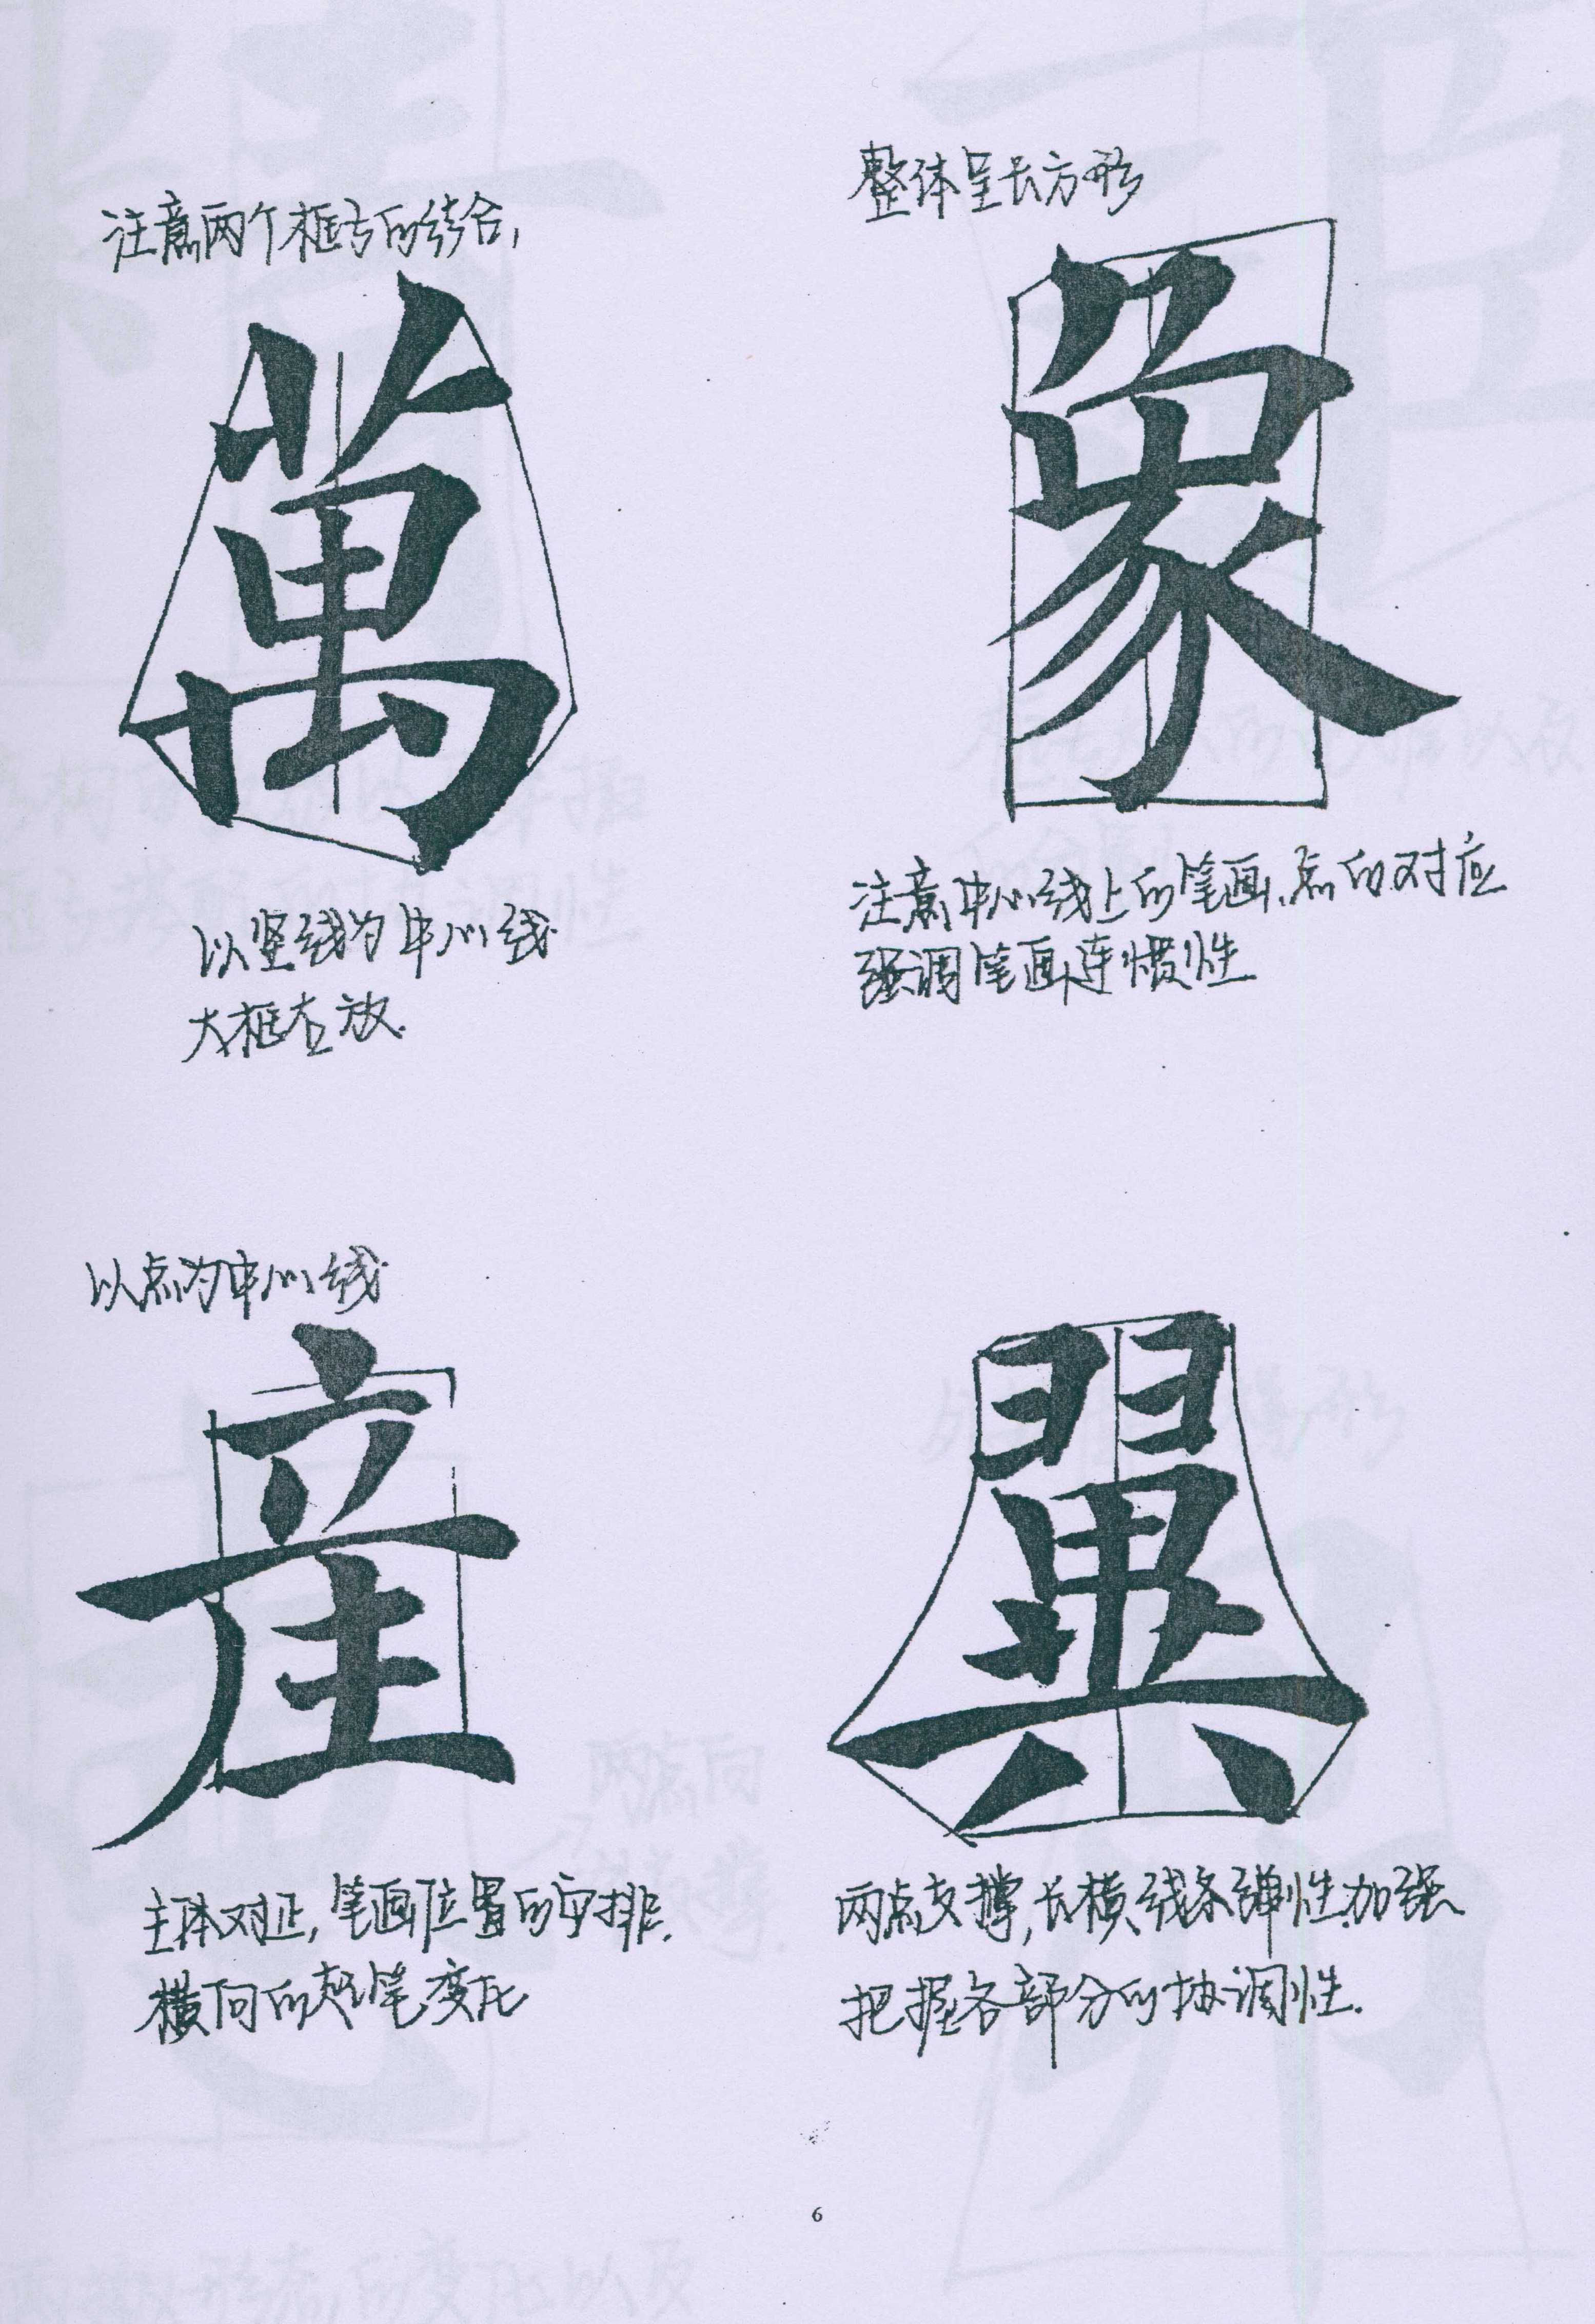 注意两个框的结合,
萬
以竖线为中心线
大框右放.
整体呈长方形
象
注意中心线上的笔画、点的对应
强调笔画连惯性
以点为中心线
産
主体对正,笔画位置的安排.
横向的起笔变化
翼
两点支撑,长横线条弹性加强
把握各部分的协调性.
6